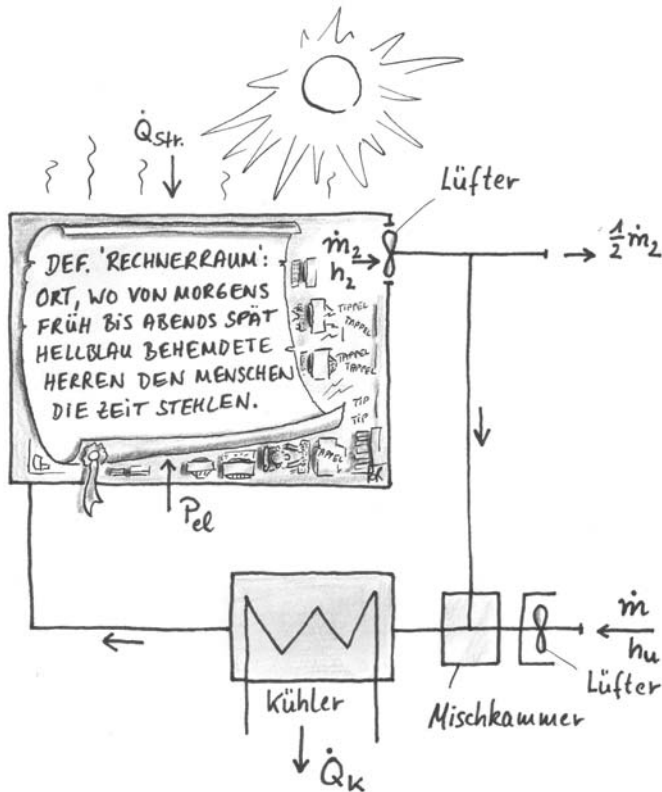 Q̇Str.
Lüfter
ṁ2
h2
1/2 ṁ2
DEF. 'RECHNERRAUM':
ORT, WO VON MORGENS
FRÜH BIS ABENDS SPÄT
HELLBLAU BEHEMDETE
HERREN DEN MENSCHEN
DIE ZEIT STEHLEN.
TIPPEL
TAPPEL
TAPPEL
TAPPEL
TIP
TIP
TAPPEL
Pel
ṁ
hu
Lüfter
Mischkammer
Kühler
Q̇K